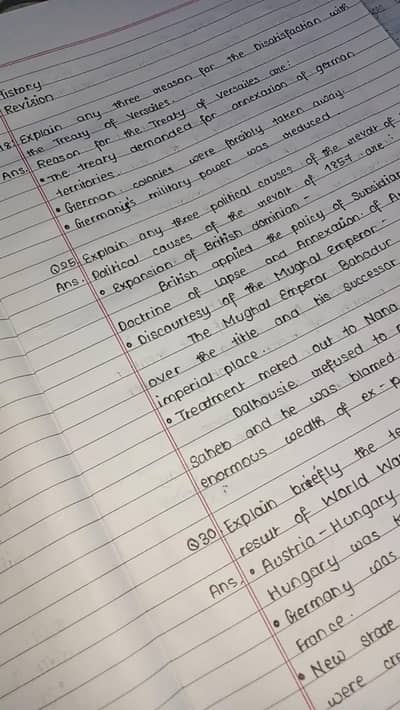 History
Revision
18. Explain any three reason for the Disatisfaction with
the Treaty of Versailes.
Ans. Reason for the Treaty of Versailes are:
• The treaty demanded for annexation of german
territories.
• German colonies were forcibly taken away.
• Germany's military power was reduced.
Q25. Explain any three political causes of the revolt of
Ans. Political causes of the revolt of 1857 are:
• Expansion of British dominion -
British applied the policy of Subsidiar
Doctrine of lapse and Annexation of A
• Discourtesy of the Mughal Emperor -
The Mughal Emperor Bahadur
over the title and his successor
imperial place.
• Treatment mered out to Nana
Dalhousie refused to
Saheb and he was blamed
enormous wealth of ex-p
Q30. Explain briefly the te
result of World Wa
Ans. • Austria-Hungary
Hungary was
• Germany was
France.
• New
were cre